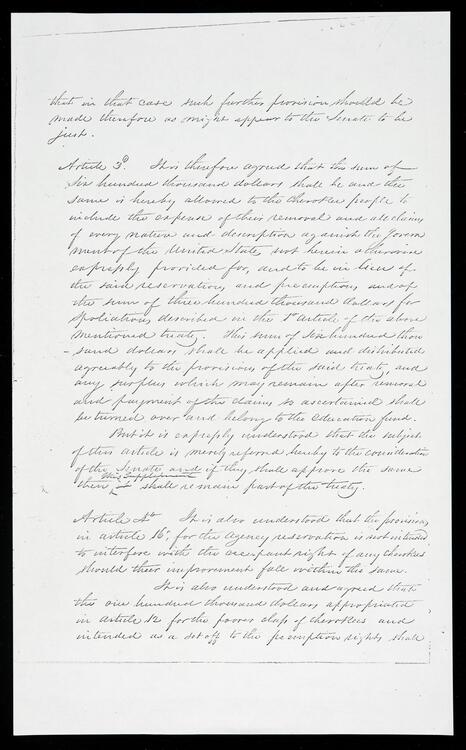 that in that case such further provision should be
made therefore as might appear to the Senate to be
just.
Article 3d. It is therefore agreed that the sum of
Six hundred thousand dollars shall be and the
same is hereby allowed to the Cherokee people to
include the expense of their removal and all claims
of every nature and description against the Govern
ment of the United States not herein otherwise
expressly provided for, and to be in lieu of
the said reservations and preemptions and of
the sum of three hundred thousand dollars for
spoliations described in the 1st article of the above
mentioned treaty. This sum of Six hundred thou
-sand dollars shall be applied and distributed
agreeably to the provisions of the said treaty, and
any surplus which may remain after removal
and payment of the claims so ascertained shall
be turned over and belong to the education fund.
But it is expressly understood that the subject
of this article is merely referred hereby to the consideration
of the Senate and if they shall approve the same
then this supplement it shall remain part of the treaty.
Article 4th It is also understood that the provisions
in article 16, for the agency reservation is not intended
to interfere with the occupant right of any Cherokees
should their improvement fall within the same.
It is also understood and agreed that
the one hundred thousand dollars appropriated
in article 12 for the poorer class of Cherokees and
intended as a set off to the pemption rights shall